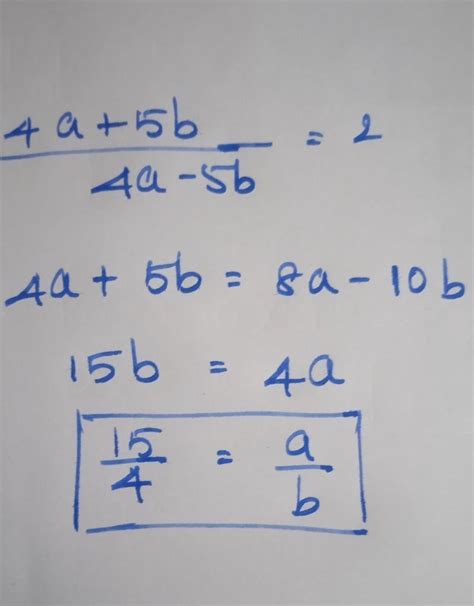 4a+5b = 2
4a-5b
4a + 5b = 8a - 10b
15b = 4a
15 = a
4 b